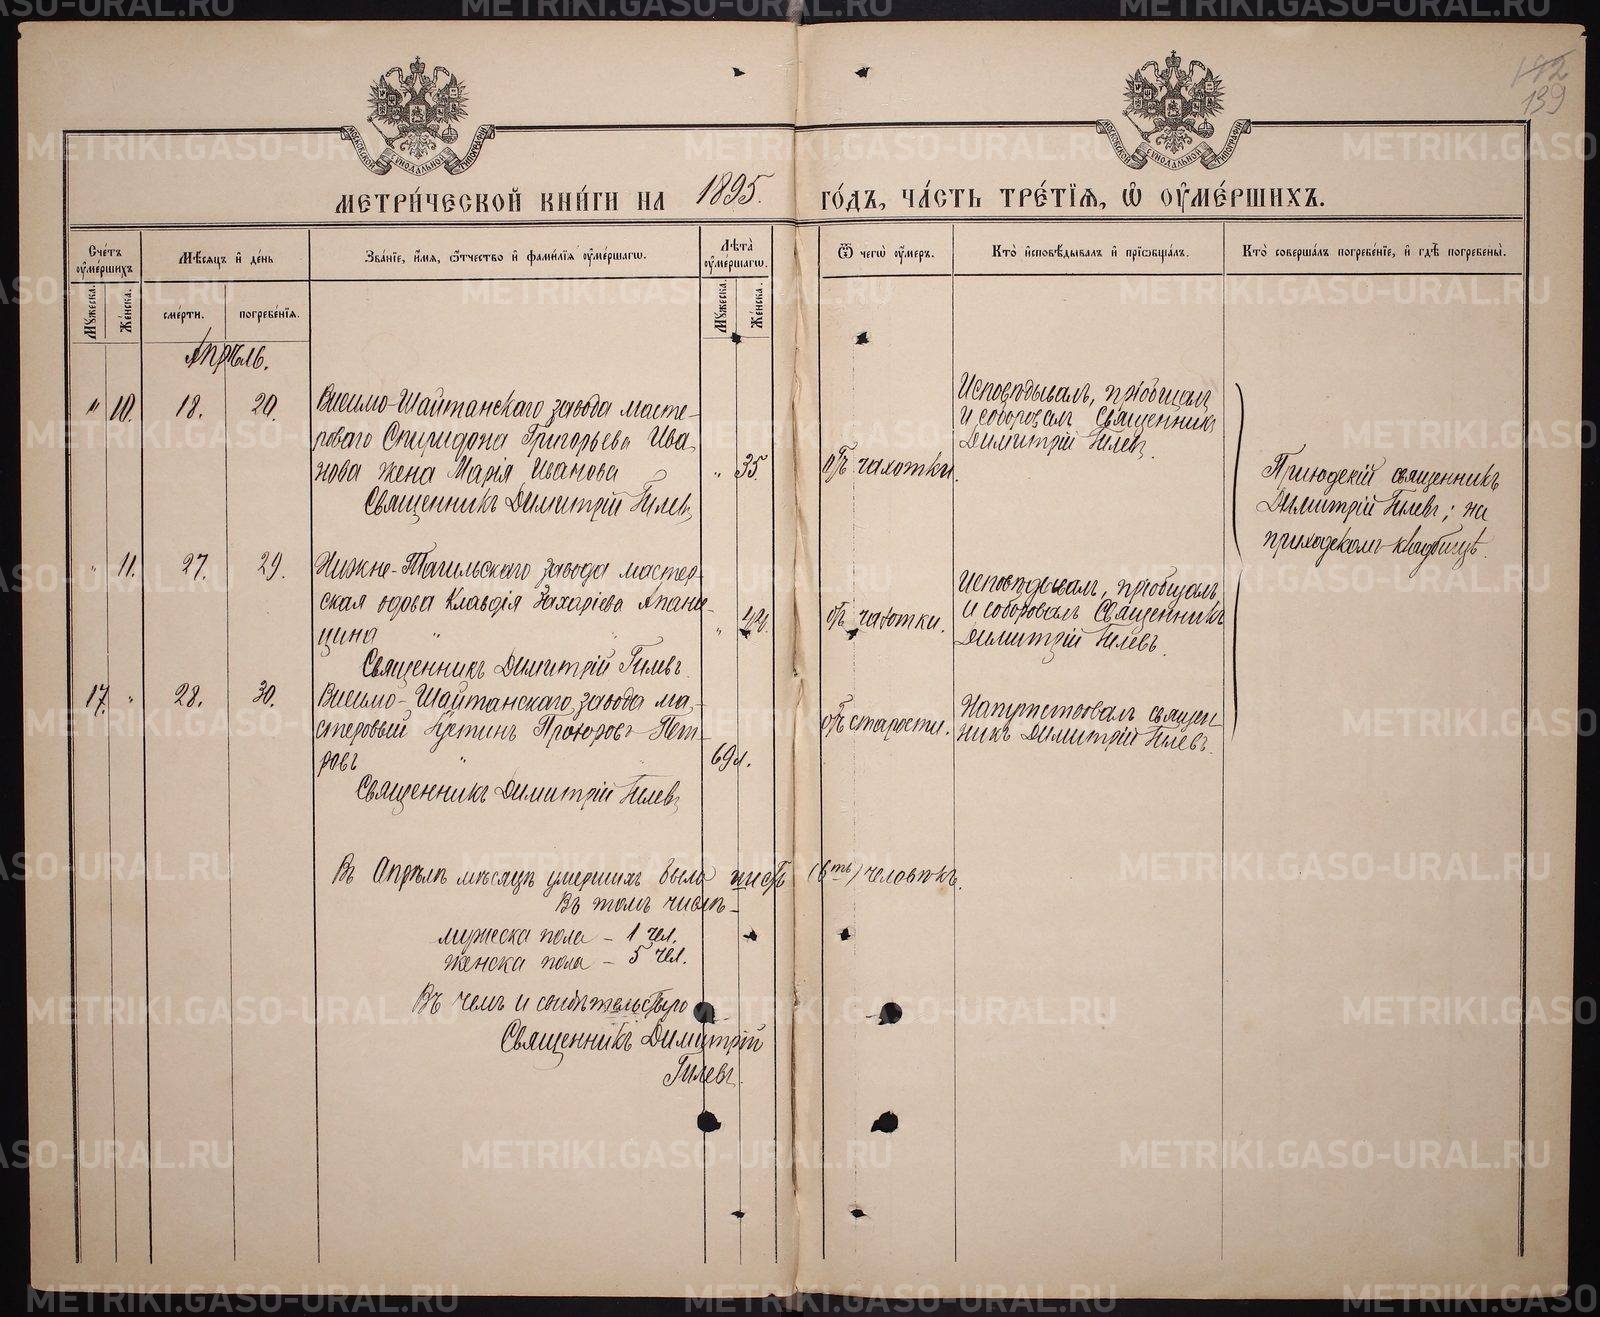 142
139
МЕТРИ́ЧЕСКОЙ КНИ́ГИ НА 1895. ГО́ДЪ, ЧА́СТЬ ТРЕ́ТІЯ, Ѡ ОУМЕ́РШИХЪ.
Сче́тъ оуме́ршихъ
Мѣ́сяцъ и де́нь
Зва́ніе, и́мя, ѻ́тчество и фами́лія оуме́ршагѡ.
Лѣта̀ оуме́ршагѡ.
Ѿ чегѡ̀ оу́меръ.
Кто̀ и҆сповѣ́дывалъ и҆ прїѡбща́лъ.
Кто̀ соверша́лъ погребе́ніе, и҆ гдѣ̀ погребены̀.
Мꙋ́жеска.
Же́нска.
сме́рти.
погребе́нїѧ.
Мꙋ́жеска.
Же́нска.
Апрѣль.
" 10. 18. 20.
Висимо-Шайтанскаго завода масте-
роваго Спиридона Григорьева Ива-
нова жена Марія Иванова
Священникъ Димитрій Гилевъ
" 35.
отъ чахотки.
Исповѣдывалъ, пріобщалъ
и соборовалъ Священникъ
Димитрій Гилевъ.
Приходскій священникъ
Димитрій Гилевъ; на
приходскомъ кладбищѣ.
" 11. 27. 29.
Нижне-Тагильскаго завода мастер-
ская вдова Клавдія Захаріева Апани-
цина "
Священникъ Димитрій Гилевъ.
" 44.
отъ чахотки.
Исповѣдывалъ, пріобщалъ
и соборовалъ Священникъ
Димитрій Гилевъ.
17. " 28. 30.
Висимо-Шайтанскаго завода ма-
стеровый Іустинъ Прохоровъ Пет-
ровъ "
Священникъ Димитрій Гилевъ
69 л.
отъ старости.
Напутствовалъ священ-
никъ Димитрій Гилевъ.
Въ Апрѣлѣ мѣсяцѣ умершихъ было шесть (6ть) человѣкъ.
Въ томъ числѣ-
мужеска пола - 1 чел.
женска пола - 5 чел.
Въ чемъ и свидѣтельствую
Священникъ Димитрій
Гилевъ.
METRIKI.GASO-URAL.RU